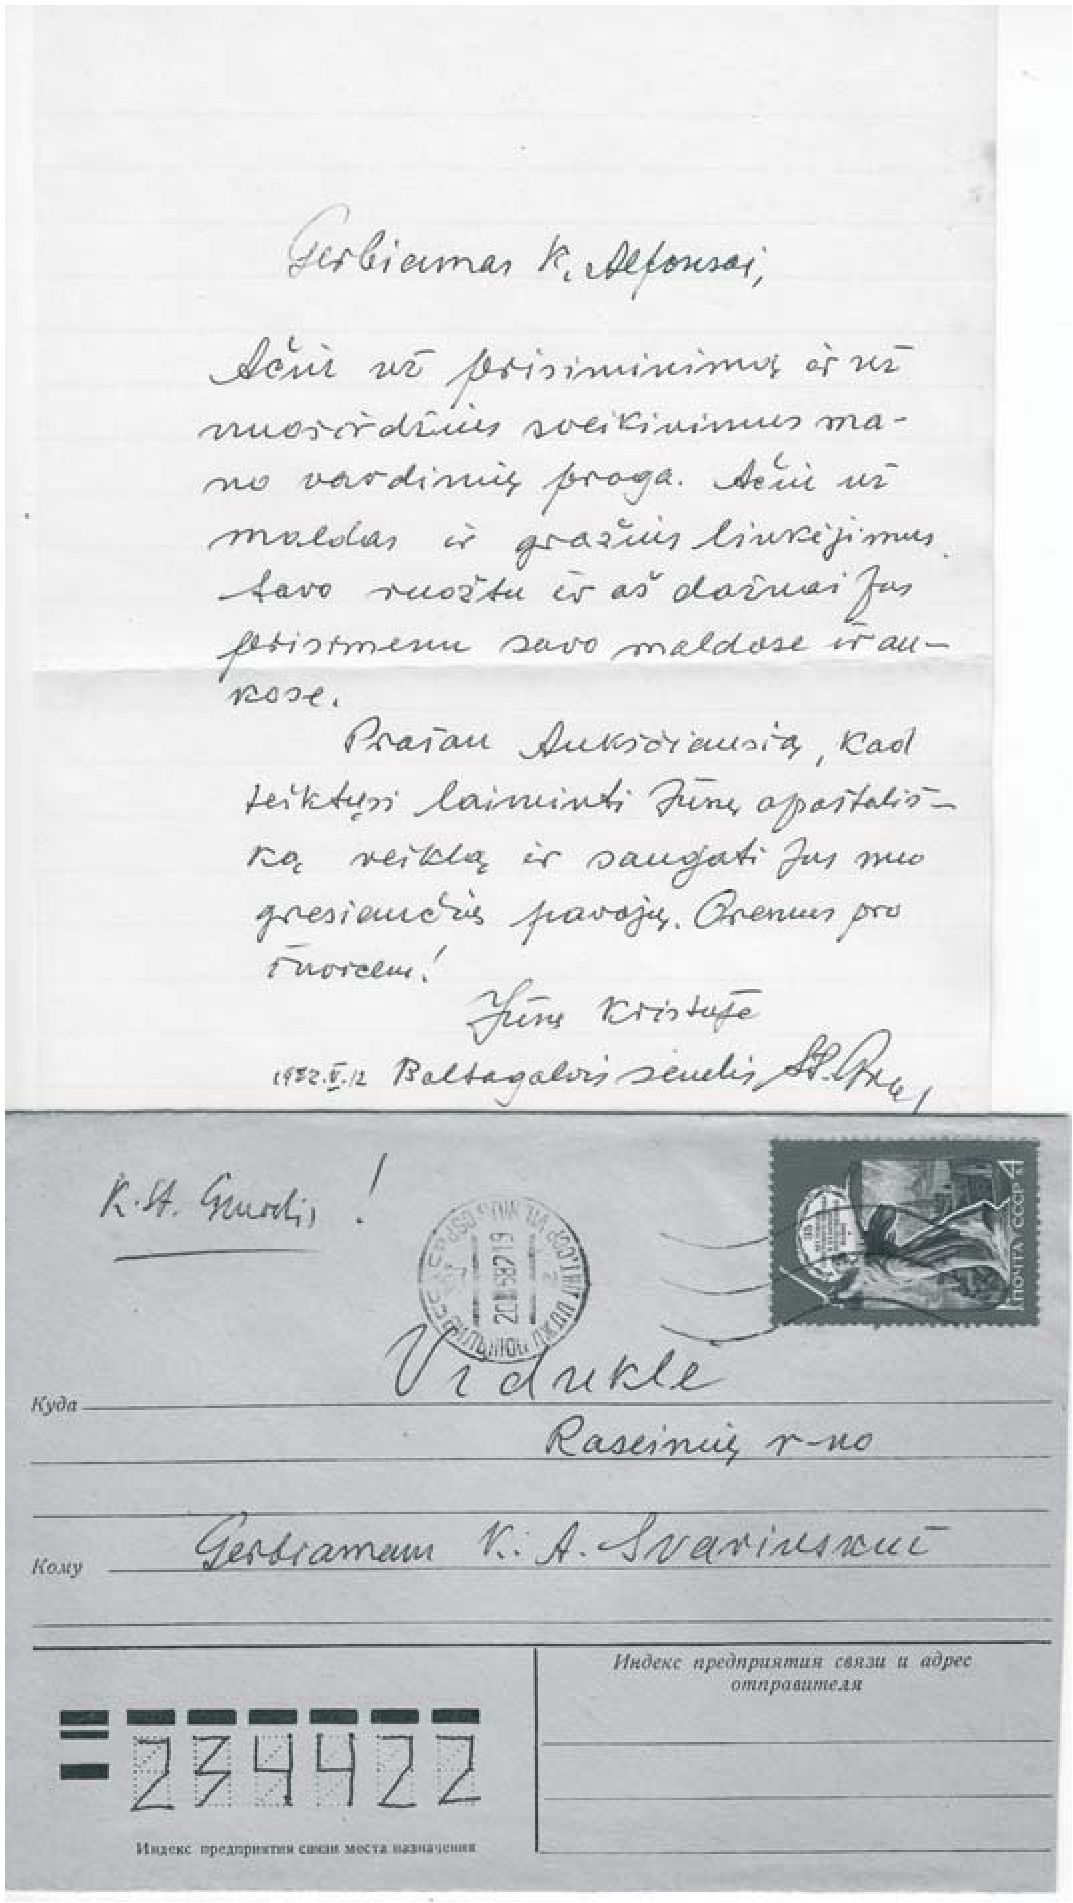 Gerbiamas K. Alfonsai,
Ačiū už prisiminimą ir už
nuoširdžius sveikinimus ma-
no vardinių proga. Ačiū už
maldas ir gražius linkėjimus.
Savo ruožtu ir aš dažnai Jus
prisimenu savo maldose ir au-
kose.
Prašau Aukščiausią, kad
teiktųsi laiminti Jūsų apaštališ-
ką veiklą ir saugoti Jus nuo
gresiančių pavojų. Oremus pro
invicem!
Jūsų Kristuje
1982.V.12 Baltagalvis senelis St.
K. St. !
ПОЧТА СССР 4
Vidukle
Куда
Raseinių r-no
Gerbiamam K. A. Svarinskui
Кому
Индекс предприятия связи и адрес
отправителя
234422
Индекс предприятия связи места назначения